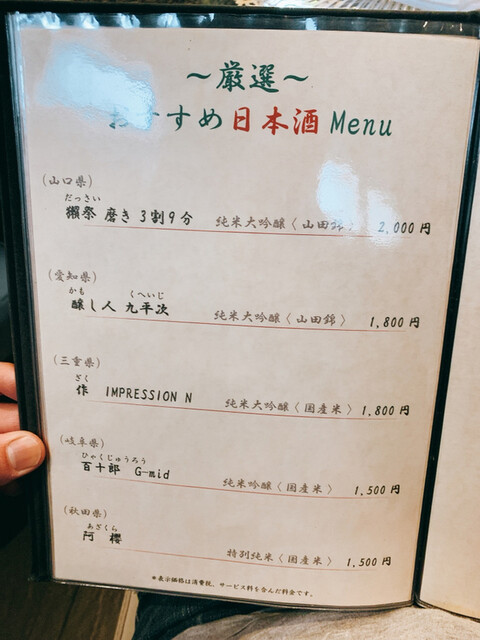 ～厳選～
おすすめ日本酒 Menu
(山口県)
だっさい
獺祭 磨き 3割9分 純米大吟醸〈山田錦〉 2,000 円
(愛知県)
かも くへいじ
醸し人 九平次 純米大吟醸〈山田錦〉 1,800 円
(三重県)
ざく
作 IMPRESSION N 純米大吟醸〈国産米〉 1,800 円
(岐阜県)
ひゃくじゅうろう
百十郎 G-mid 純米吟醸〈国産米〉 1,500 円
(秋田県)
あざくら
阿櫻 特別純米〈国産米〉 1,500 円
※表示価格は消費税、サービス料を含んだ料金です。